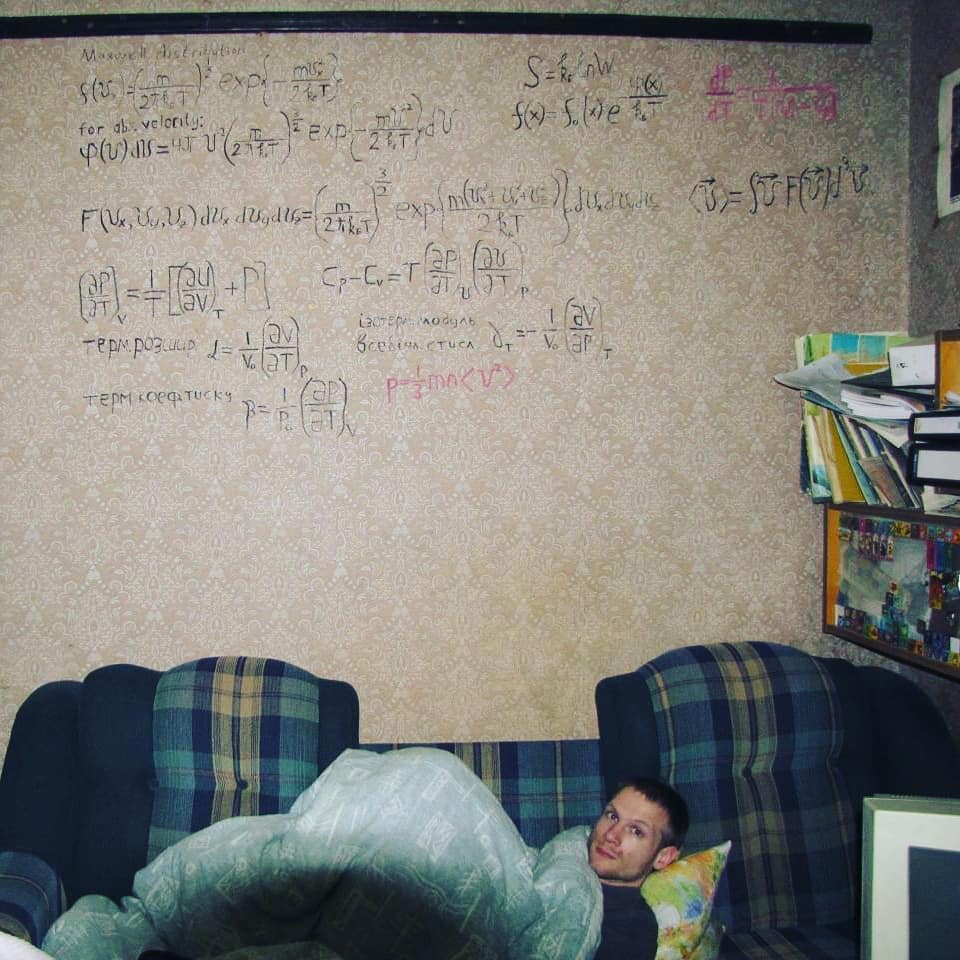 Maxwell distribution
f(vₓ)=(m/2πk_Б T)^½ exp{-mvₓ²/2k_Б T}
S=k_Б lnW
for abs. velority:
φ(v)dv=4π v²(m/2πk_Б T)^(3/2) exp{-mv²/2k_Б T}dv
f(x)=f₀(x)e^(φ(x)/k_Б T)
F(vₓ,v_y,v_z)dvₓdv_ydv_z=(m/2πk_Б T)^(3/2) exp{m(vₓ²+v_y²+v_z²)/2k_Б T}dvₓdv_ydv_z
⟨v⃗⟩=∫v⃗F(v⃗)d³v⃗
(∂P/∂T)_V=1/T[(∂U/∂V)_T+P]
C_P-C_V=T(∂P/∂T)_v(∂v/∂T)_P
терм.розшир α=1/V₀(∂V/∂T)_P
ізотерм.модуль
всебічн.стисл γ_T=-1/V₀(∂V/∂P)_T
терм коеф тиску β=1/P₀(∂P/∂T)_V
p=⅓mn⟨v²⟩